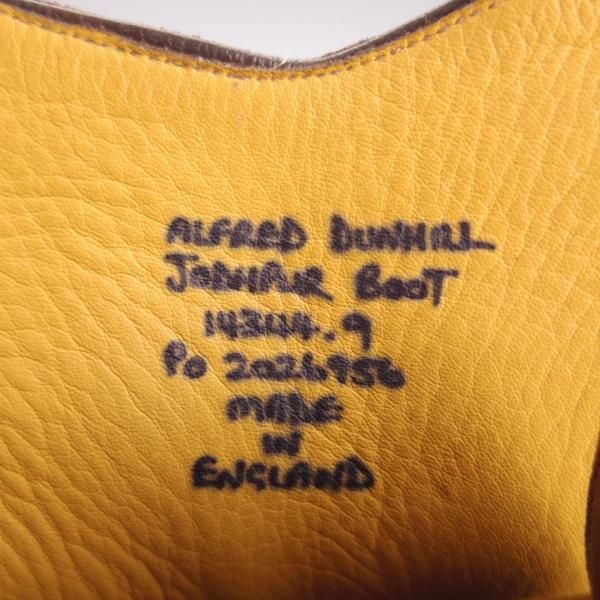 ALFRED DUNHILL
JODHPUR BOOT
14344.9
PO 2026956
MADE
IN
ENGLAND